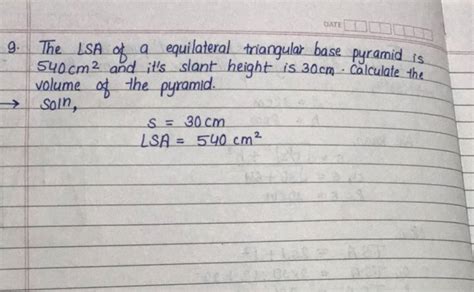 DATE
9. The LSA of a equilateral triangular base pyramid is
540cm² and it's slant height is 30cm. Calculate the
volume of the pyramid.
→ Soln,
s = 30 cm
LSA = 540 cm²